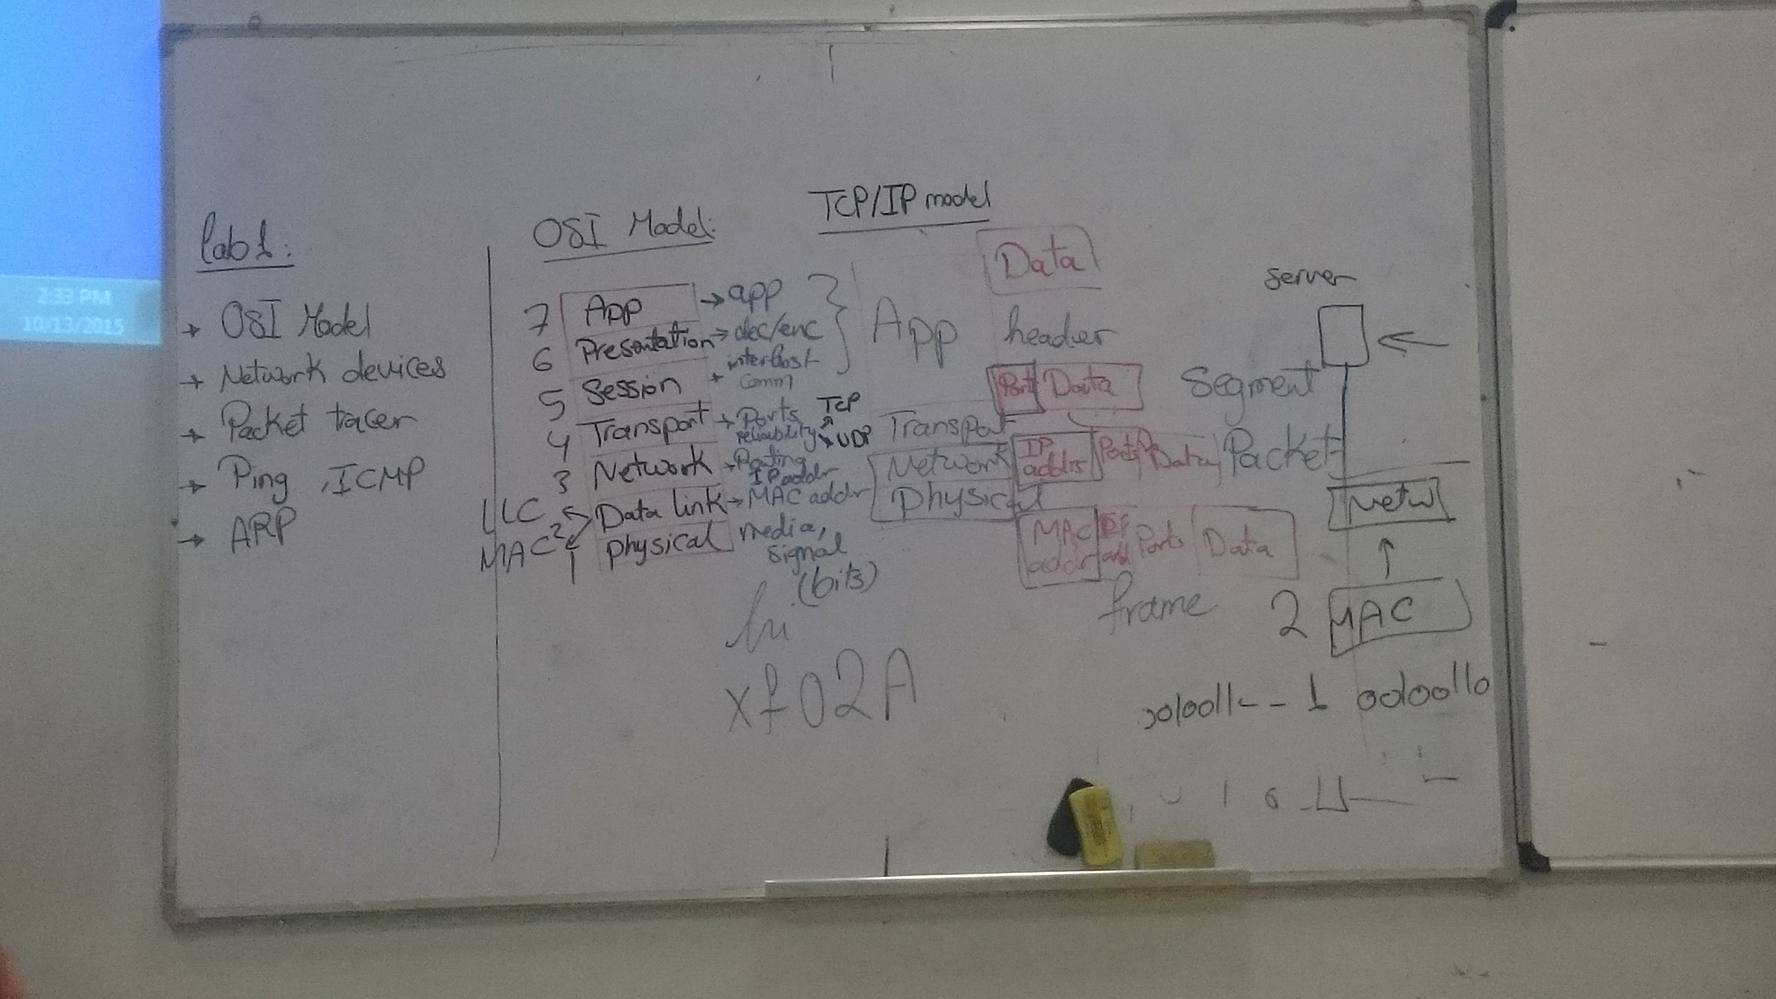 2:33 PM
10/13/2015
lab 1:
→ OSI Model
→ Network devices
→ Packet tracer
→ Ping, ICMP
→ ARP
OSI Model:
7 App → app
6 Presentation → dec/enc
5 Session → interhost comm
4 Transport → Ports reliability TCP UDP
3 Network → Routing IP addr
2 Data link → MAC addr
LLC
MAC
1 physical media, signal (bits)
hi
xf02A
TCP/IP model
App
Transport
Network
Physical
Data
header
Port Data
Segment
IP addrs Ports Data Packet
MAC addr IP addr Ports Data
frame
server
Netw
2 MAC
1 00100110